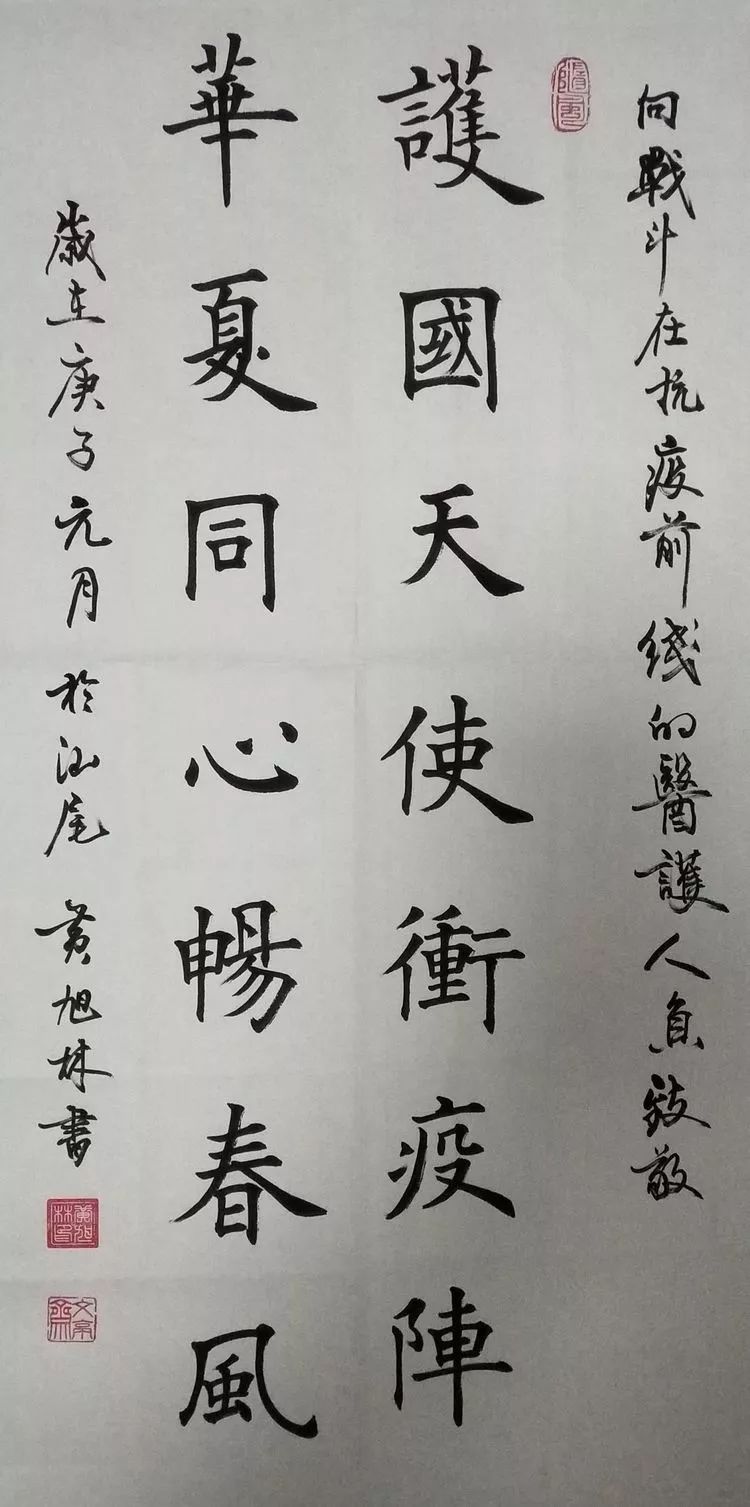 向戰斗在抗疫前线的醫護人員致敬
護國天使衝疫陣
華夏同心暢春風
歲在庚子元月於汕尾黃旭林書